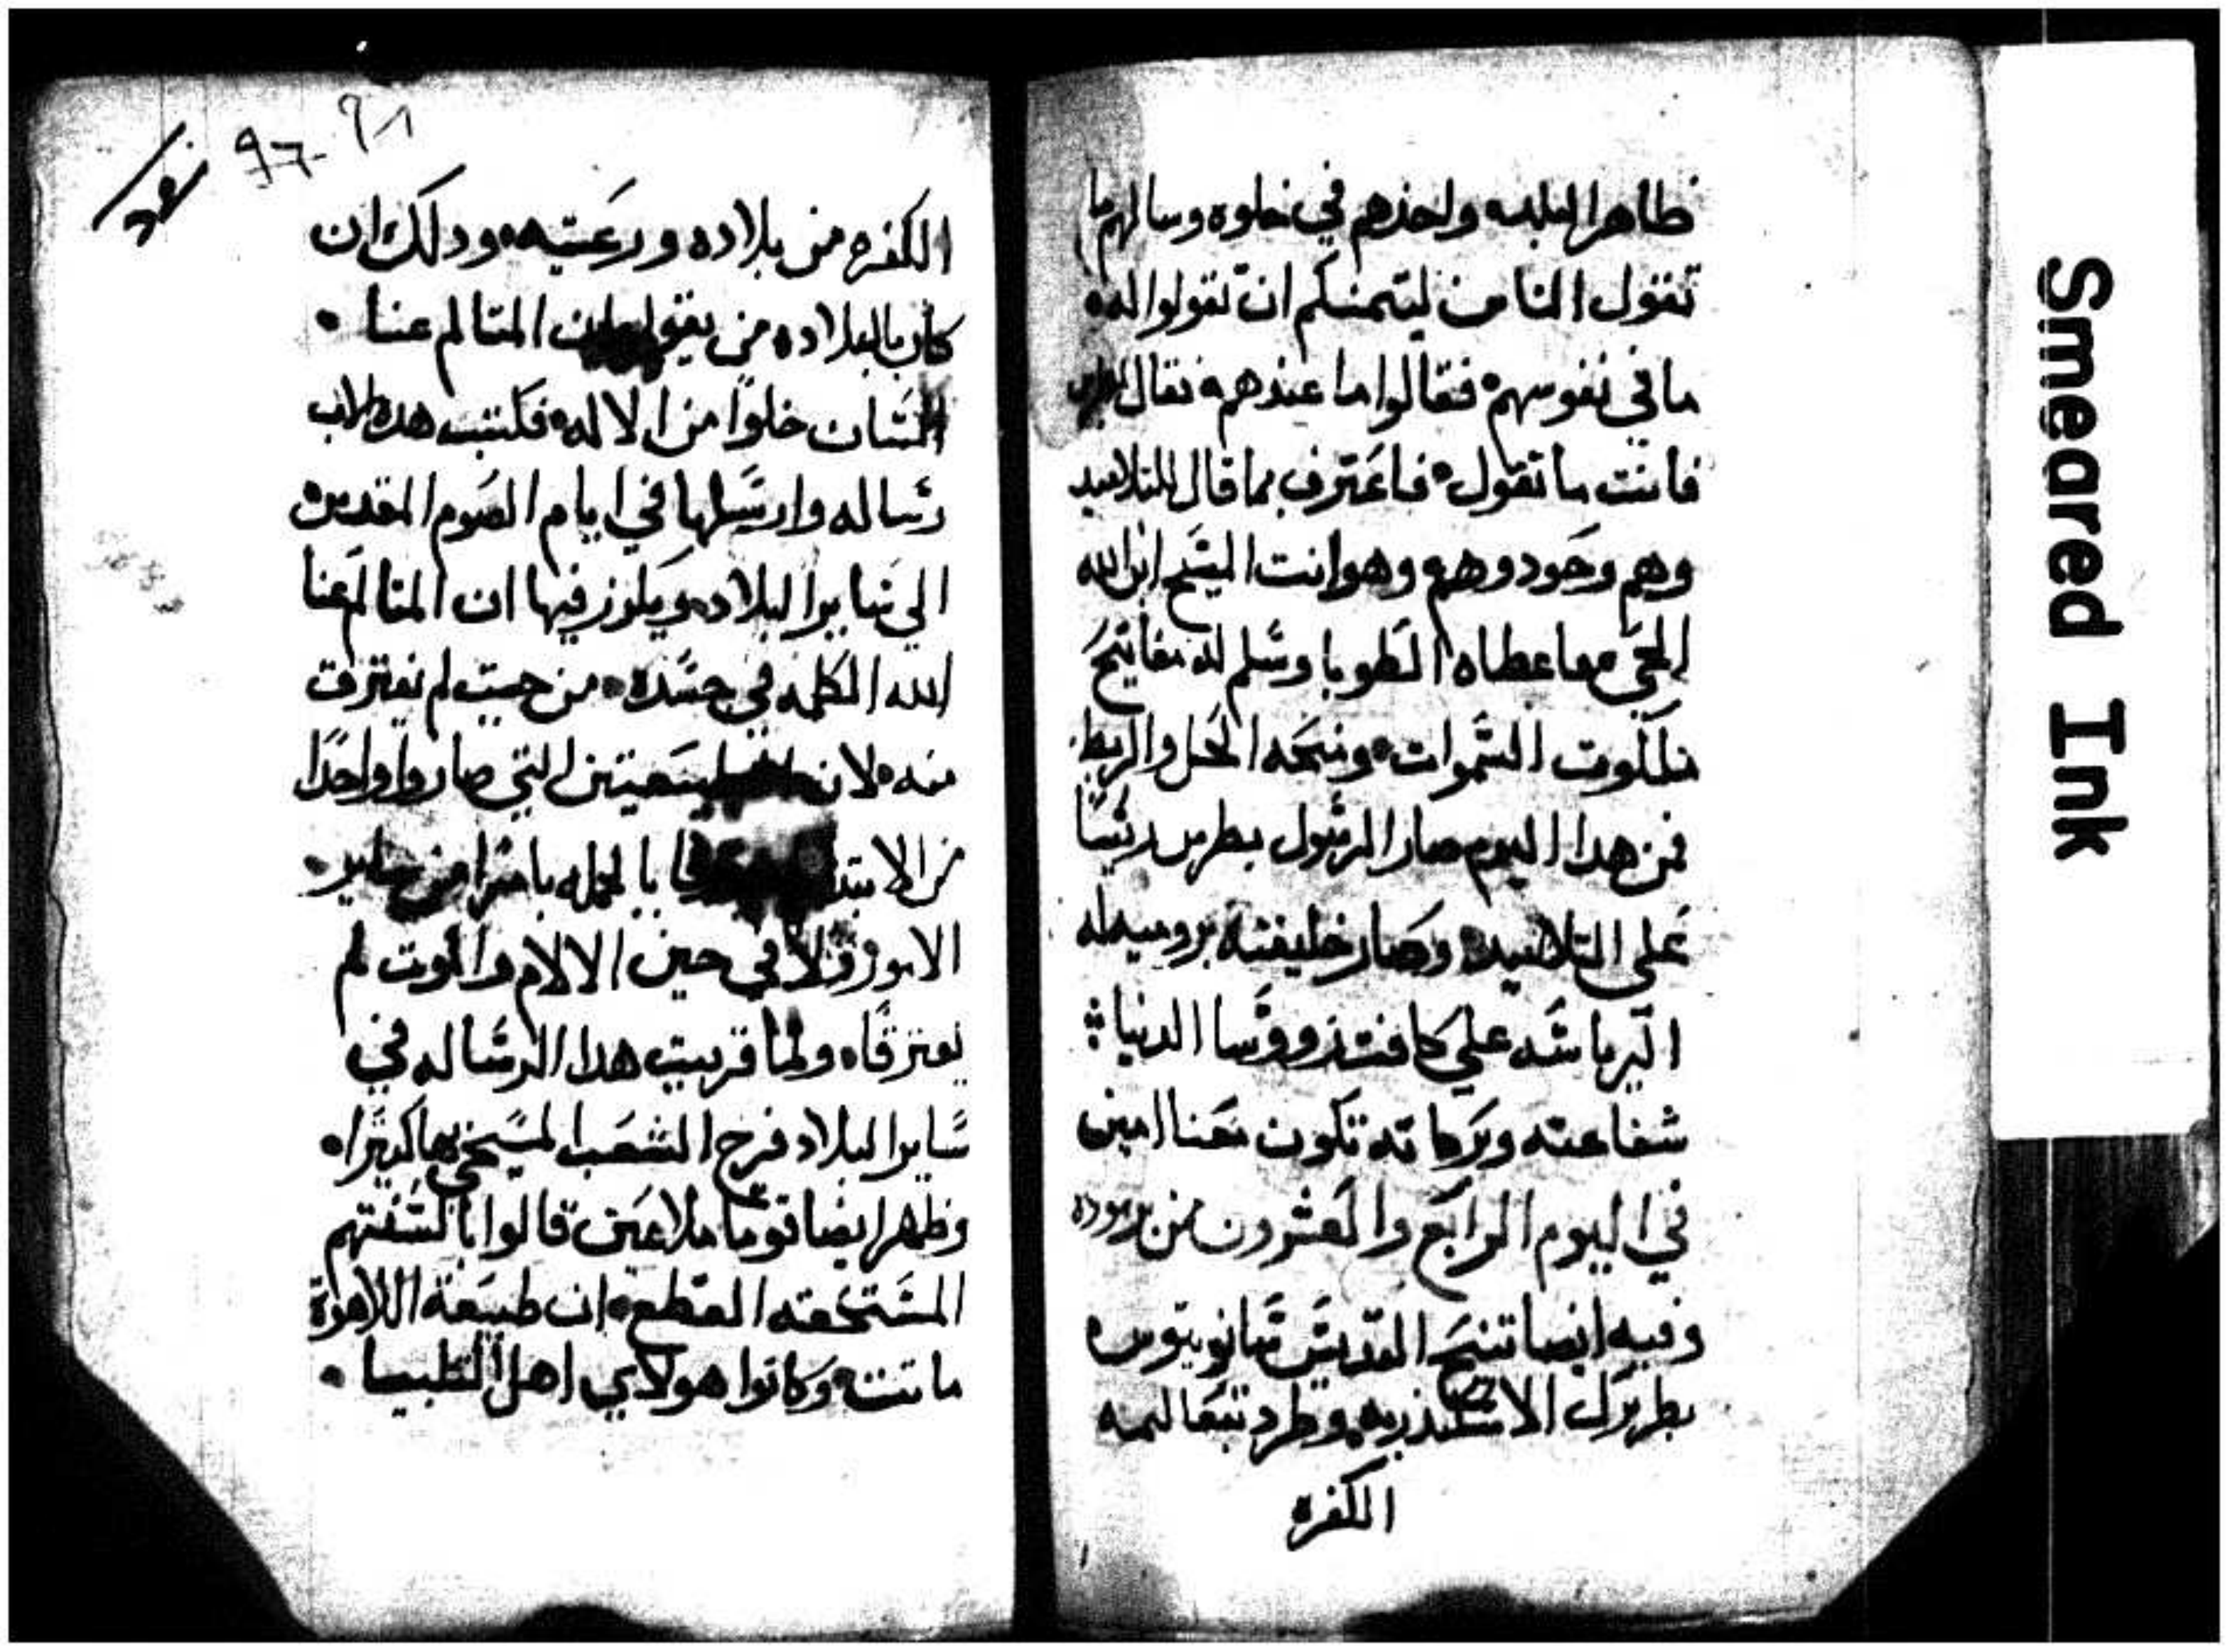 ظاهر البلده واخذهم في خلوه وسالهم ما
تقول الناس ليتمنكم ان تقولوا له
ما في نفوسهم فقالوا ما عندهم فقال
فانت ما تقول فاعترف بما قال التلاميد
وهم وجودوهم وهو انت المسَيح ابن الله
الحي فاعطاه الطوبا وسَلم له مفاتيح
ملكوت السَموات ومنحه الحل والربط
فمن هدا اليوم صار الرسَول بطرس ريسَا
على التلاميد وصار خليفته بروميه له
الرياسَه علي كافت رووسَا الدنيا
شفاعته وبركاته تكون معنا امين
في اليوم الرابع والعشرون من برموده
وفيه ايضا تنيح القديسَ سَانوتيوس
بطريرك الاسكندريه وطرد بتعاليمه
الكفره
97-91
الكفره من بلاده ورعيته ودلك ان
كان بالبلاده من يقول ان المتالم عنا
انسَان خلوا من الاله فكتب هدا الاب
رسَاله وارسَلها في ايام الصوم المقدس
الي سَاير البلاد ويكرز فيها ان المتالم عنا
الله الكلمه في جسَده من حيت لم يفترق
منه لان الطبيعتين التي صاروا واحدًا
من الابتدا بالجمله
الامور ولا في حين الالام والموت لم
يفترقا ولما قريت هدا الرسَاله في
سَاير البلاد فرح الشعب المسَيحي بها كتيرا
وظهر ايضا قوما ملاعين قالوا بالسَنتهم
المسَتحقه القطع ان طبيعة اللاهوت
ماتت وكانوا هولاي اهل
Smeared Ink